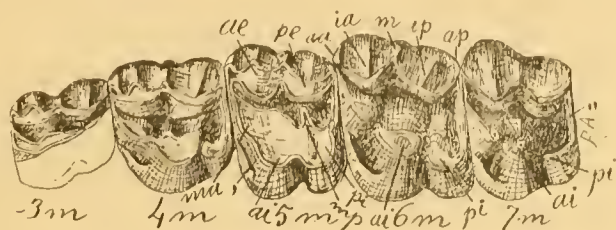 ae pe aa ia m ip ap
ma,
-3m 4m ai 5m m p ai 6m pi 7m ai pi